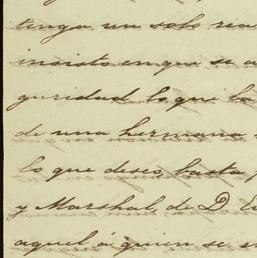 tenga un solo rea
insisto en que se a
guridad lo que ba
de una hermana
lo que deseo, basta
y Marshal de D. E
aquel á quien se en